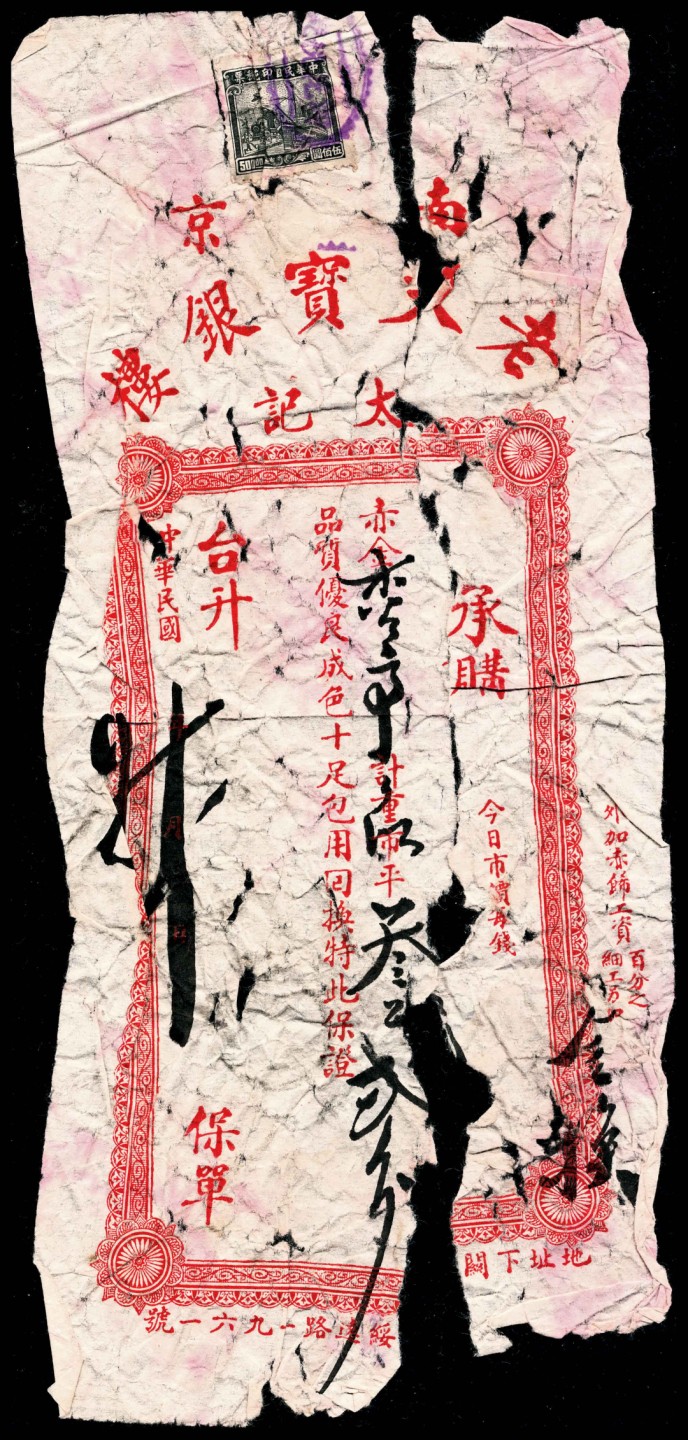 中華民國印花稅票
伍佰圓
南京
老天寶銀樓
太記
外加赤飾工資百分之
細工另
承購
今日市價每錢
赤金計重市平叁貳分
品質優良成色十足包用回換特此保證
台升
中華民國年月
保單
地址下關綏遠路一九六一號